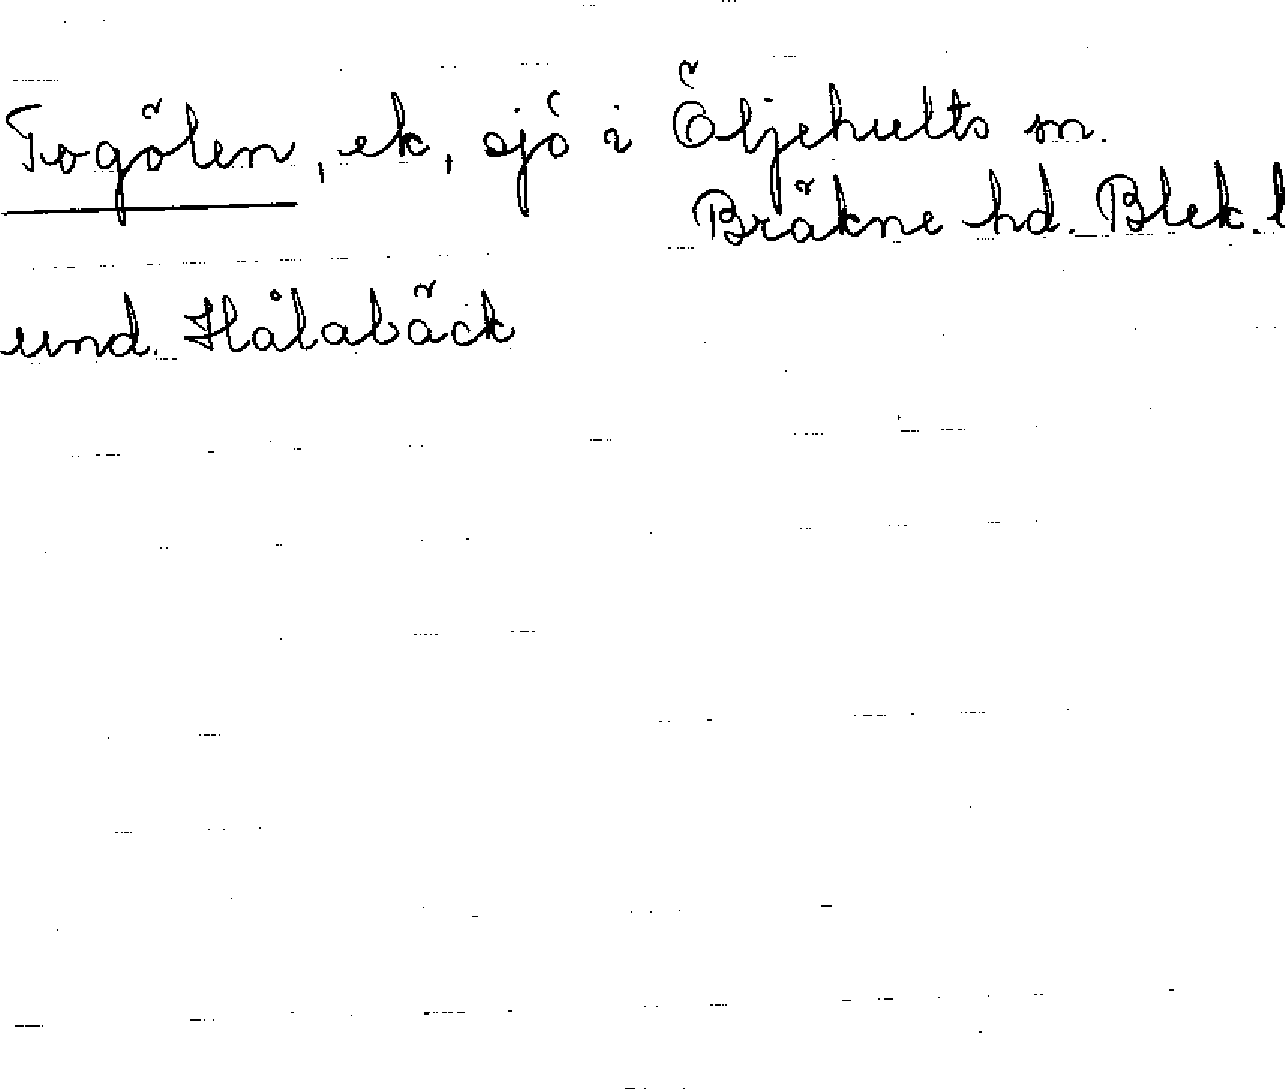 Togölen, ek, sjö i Öljehults sn.
Bräkne hd. Blek. l
und. Hålabäck